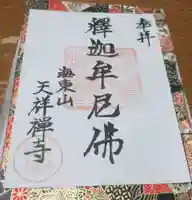 奉拝
釋迦牟尼佛
海東山
天祥禪寺